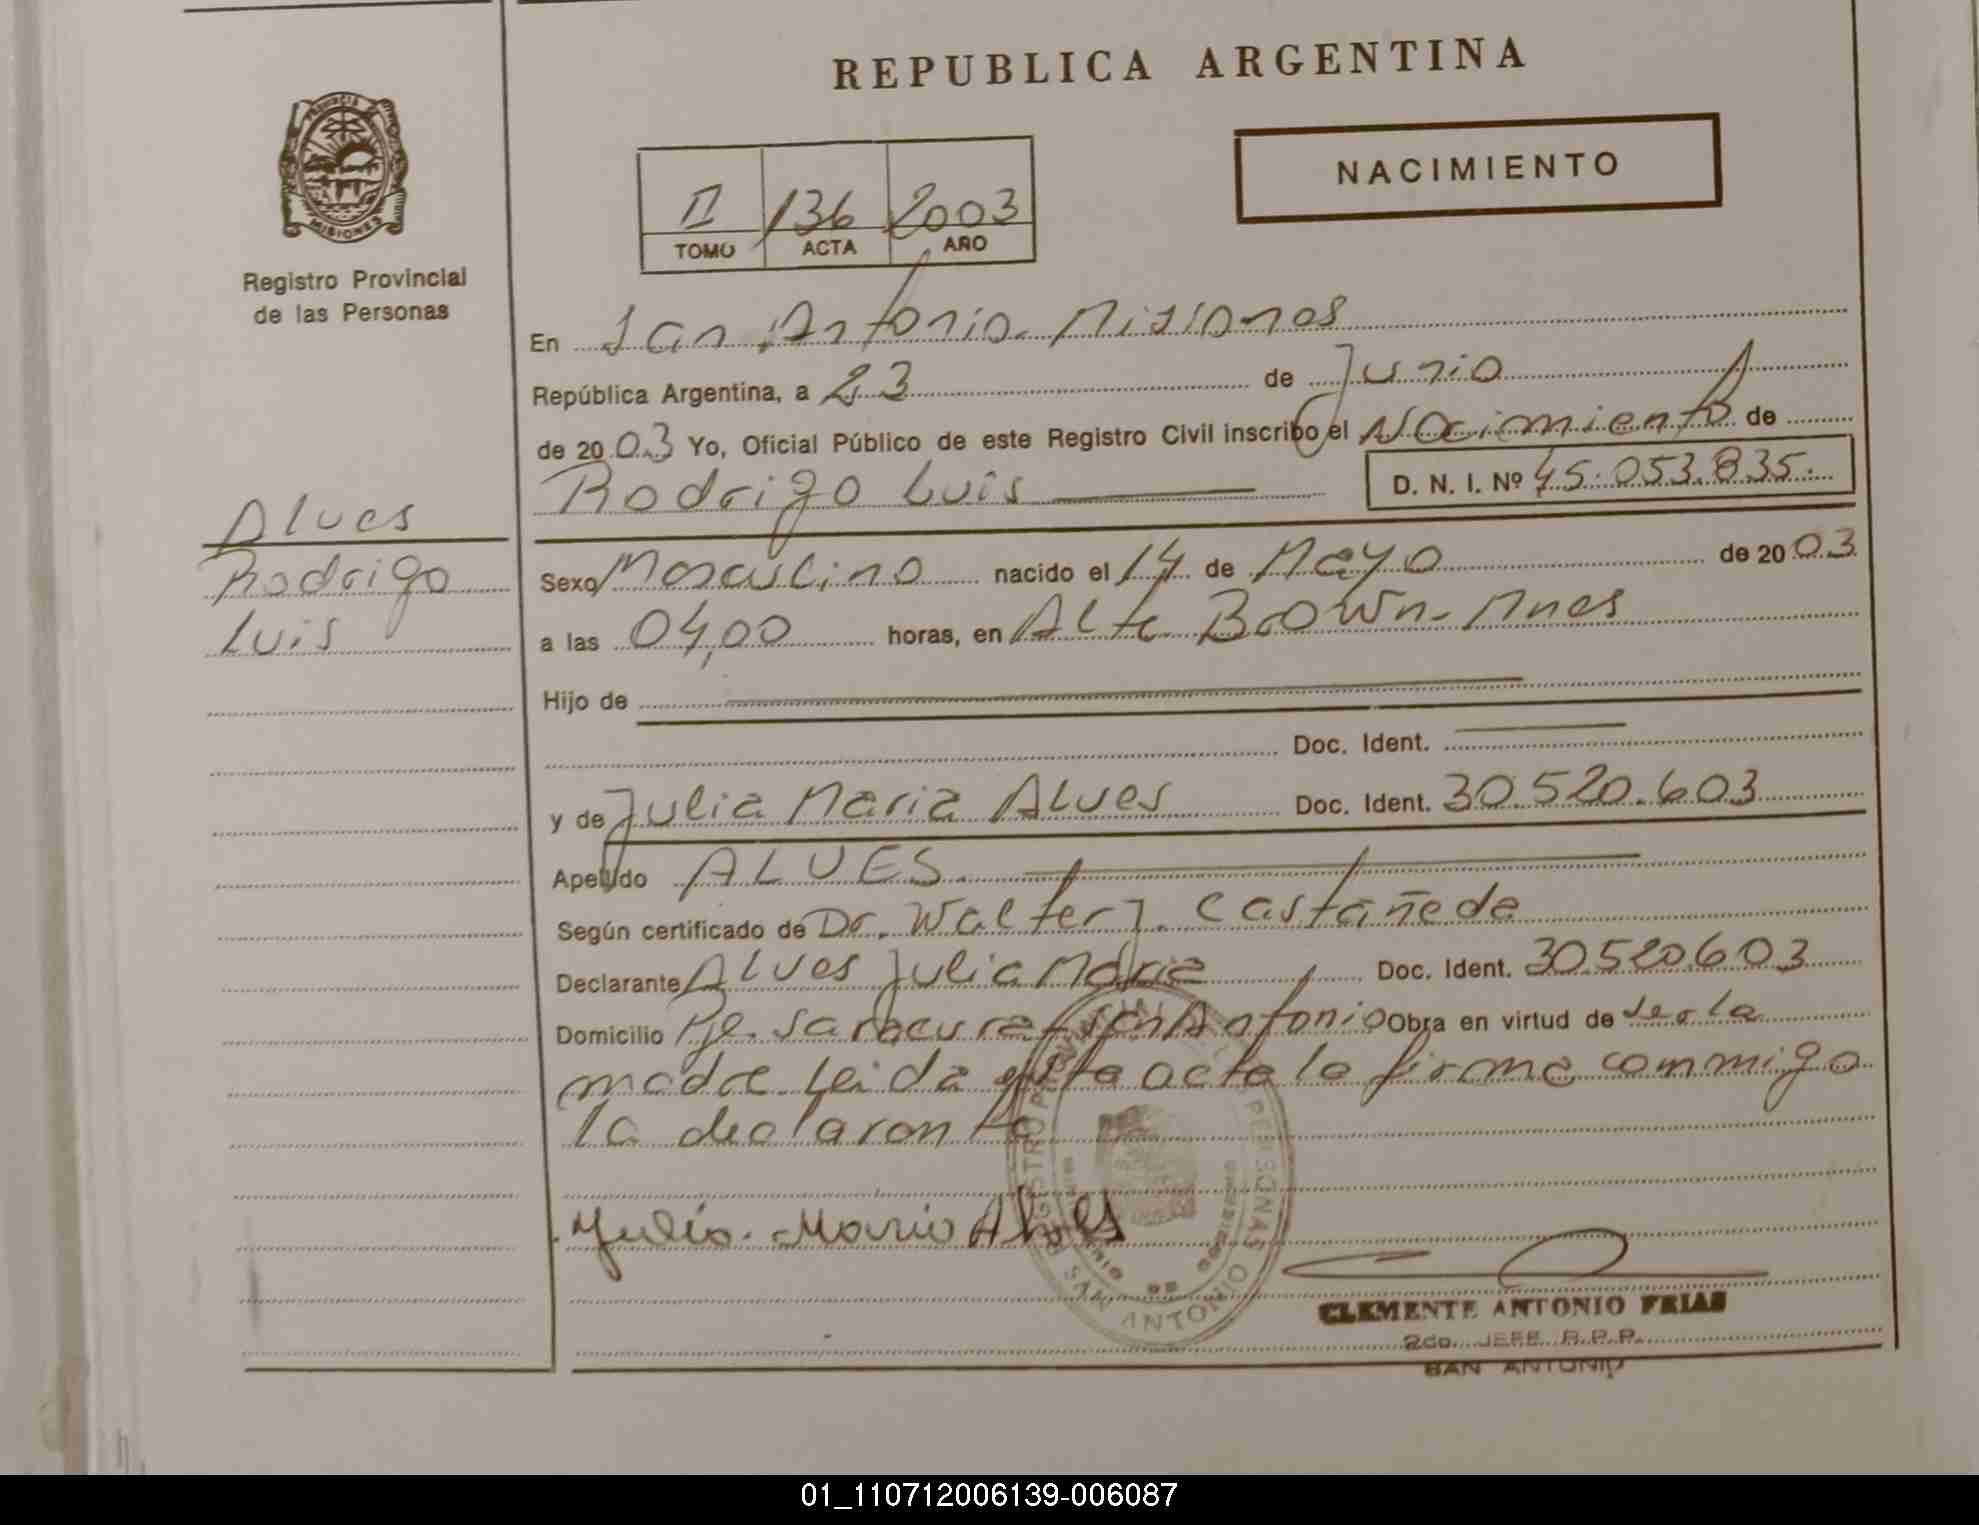 REPUBLICA ARGENTINA
NACIMIENTO
PROVINCIA DE
MISIONES
Registro Provincial
de las Personas
II 136 2003
TOMO ACTA AÑO
En San Antonio - Misiones
República Argentina, a 23 de Junio
de 2003 Yo, Oficial Público de este Registro Civil inscribo el Nacimiento de
Rodrigo Luis D. N. I. Nº 45.053.835.
Alves
Rodrigo
Luis
Sexo Masculino nacido el 14 de Mayo de 2003
a las 04,00 horas, en Alte Brown - Mnes
Hijo de
Doc. Ident.
y de Julia Maria Alves Doc. Ident. 30.520.603
Apellido ALVES
Según certificado de Dr. Walter J. Castañeda
Declarante Alves Julia Maria Doc. Ident. 30.520.603
Domicilio Pje. Saracura - San Antonio Obra en virtud de ser la
madre Leida esta acta la firma conmigo
la declarante
Julia Maria Alves
PERSONAS
SAN ANTONIO
CLEMENTE ANTONIO FRIAS
2do. JEFE R.P.P.
SAN ANTONIO
01_110712006139-006087